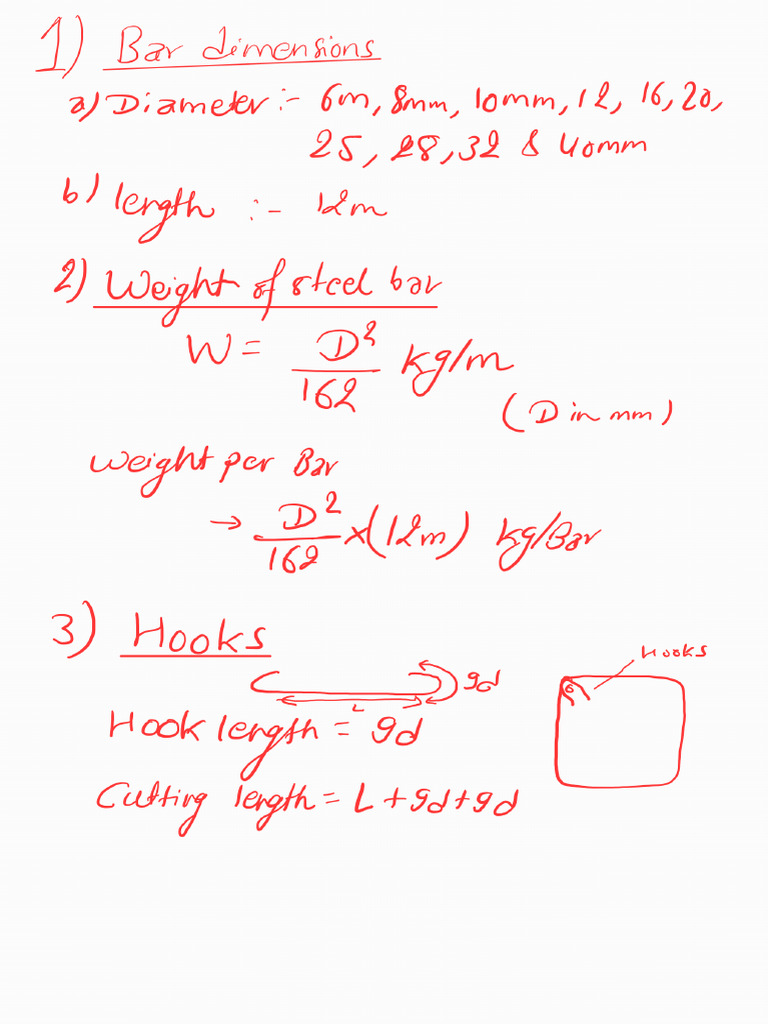 1) Bar dimensions
a) Diameter :- 6m, 8mm, 10mm, 12, 16, 20,
25, 28, 32 & 40mm
b) length :- 12m
2) Weight of steel bar
W = D²/162 kg/m
(D in mm)
weight per Bar
→ D²/162 × (12m) kg/Bar
3) Hooks
Hooks
9d
L
Hook length = 9d
Cutting length = L + 9d + 9d